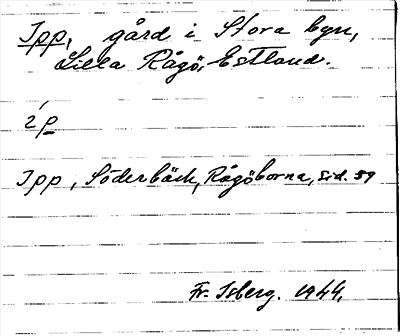 Ipp, gård i Stora byn,
Lilla Rågö, Estland.
Ipp, Söderbäck, Rågöborna, Sid. 59
Fr. Isberg. 1944.